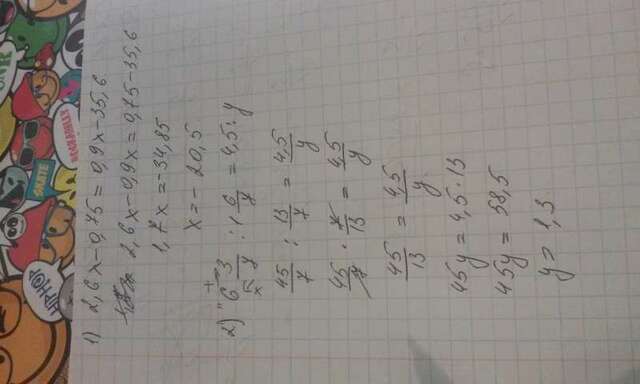 HIPHOP
SKATE
ROCKABILLY
1) 2,6x-0,75=0,9x-35,6
2,6x-0,9x=0,75-35,6
1,7x=-34,85
x=-20,5
2) 6 3/7 : 1 6/7 = 4,5 : y
45/7 : 13/7 = 4,5/y
45/7 · 7/13 = 4,5/y
45/13 = 4,5/y
45y = 4,5·13
45y = 58,5
y = 1,3